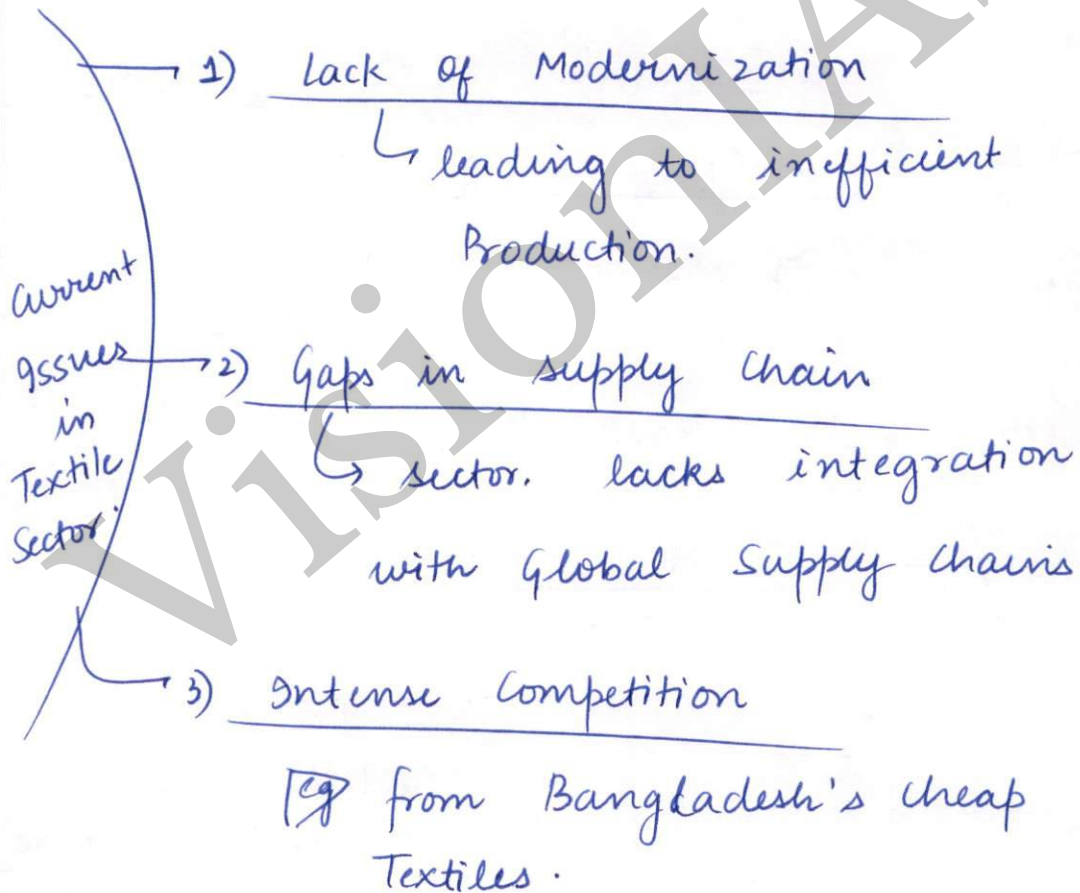 Current
Issues
in
Textile
Sector.
1) Lack of Modernization
leading to inefficient
Production.
2) Gaps in supply chain
sector. lacks integration
with Global Supply Chains
3) Intense Competition
eg from Bangladesh's cheap
Textiles.
VisionIA